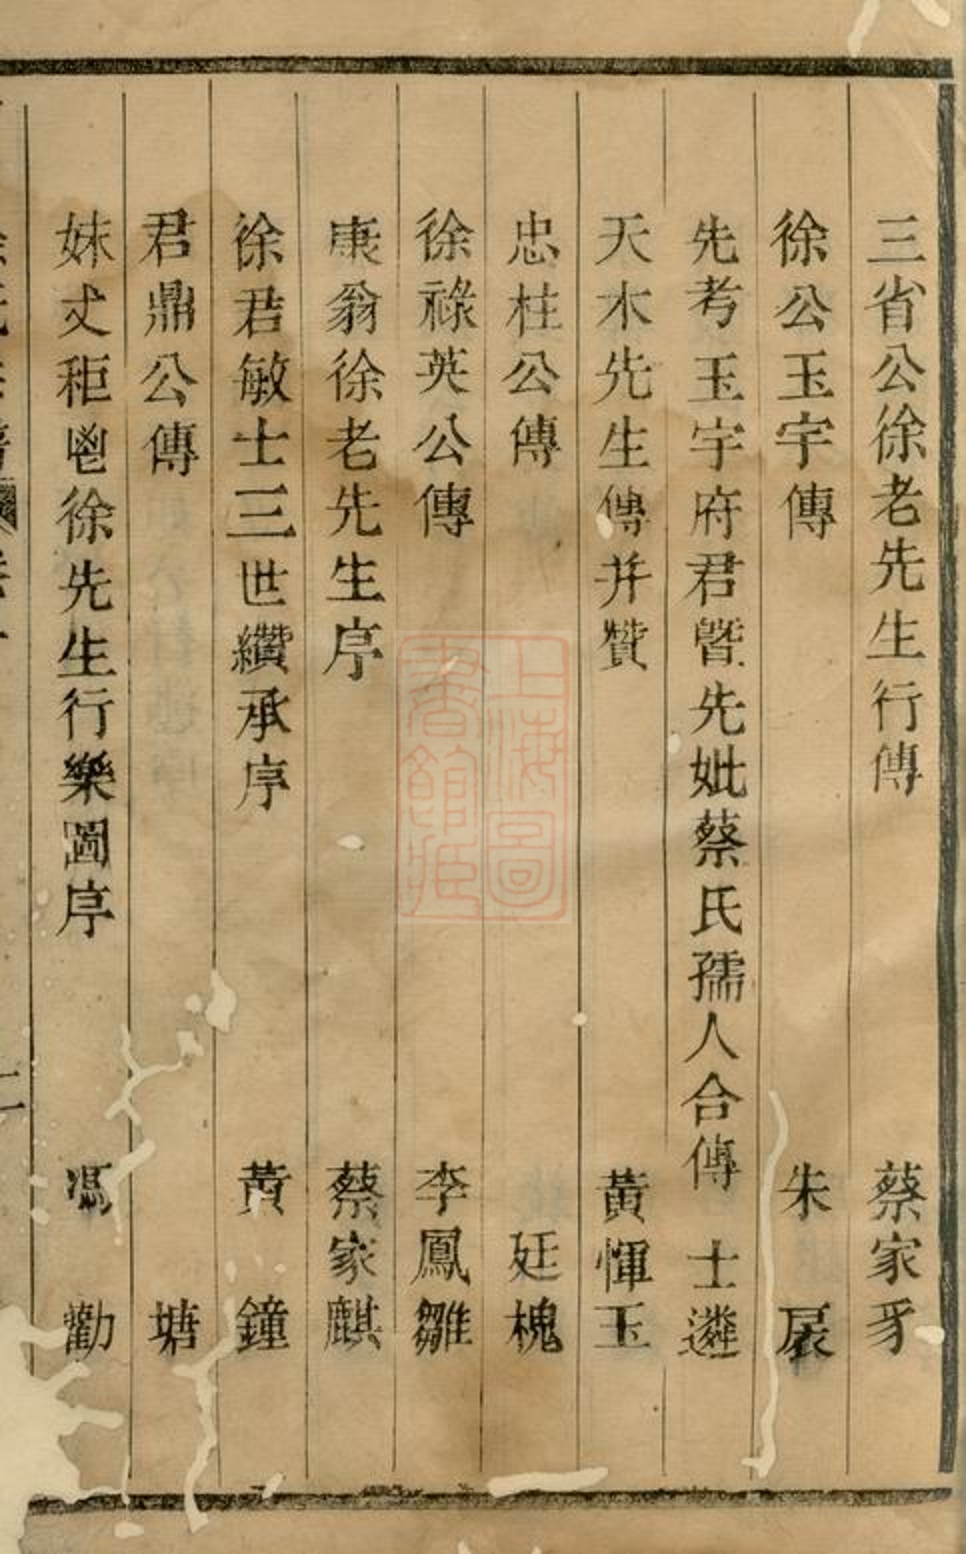 三省公徐老先生行傳 蔡家豸
徐公玉宇傳 朱扆
先考玉宇府君曁先妣蔡氏孺人合傳 士遴
天木先生傳并贊 黃惲玉
忠柱公傳 廷槐
徐祿英公傳 李鳳雛
康翁徐老先生序 蔡家麒
徐君敏士三世纘承序 黃鐘
君鼎公傳 塘
妹丈秬鬯徐先生行樂圖序 馮勸
上海圖書館藏